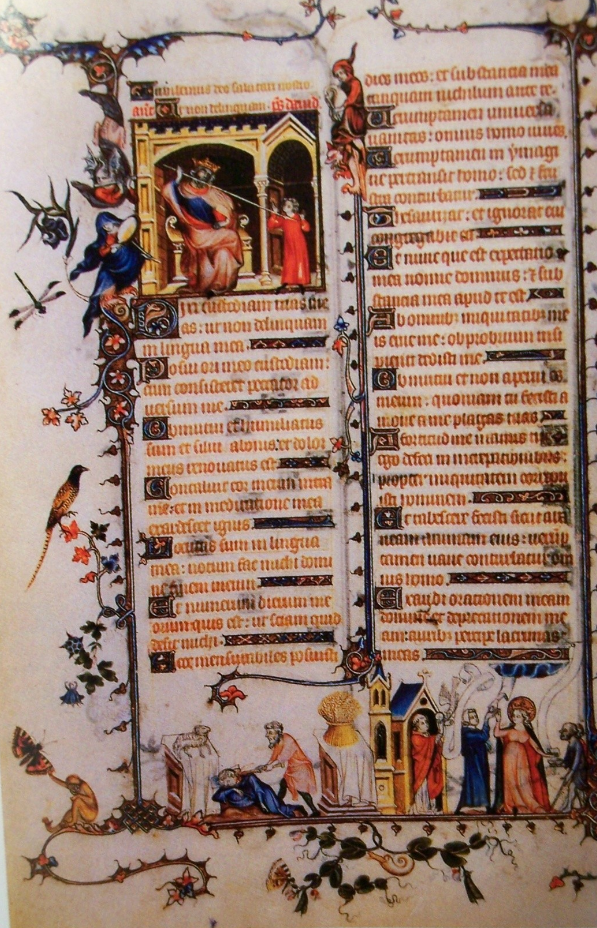 Jubilemus deo salutari nostro.
ant. Ut non delinquam. ps david
Dixi custodiam vias me
as: ut non delinquam
in lingua mea
Posui ori meo custodiam:
cum consisteret peccator ad
versum me
Obmutui et humiliatus
sum et silui a bonis: et dolor
meus renovatus est
Concaluit cor meum intra
me: et in meditatione mea
exardescet ignis
Locutus sum in lingua
mea: notum fac michi domi
ne finem meum
Et numerum dierum me
orum quis est: ut sciam quid
desit michi
Ecce mensurabiles posuisti
dies meos: et substancia mea
tanquam nichilum ante te.
Verumptamen universa
vanitas: omnis homo vivens
Verumptamen in ymagi
ne pertransit homo: sed et frus
tra conturbatur
Thesaurizat: et ignorat cui
congregabit ea
Et nunc que est expectatio
mea nonne dominus: et sub
stancia mea apud te est
Ab omnibus iniquitatibus me
is erue me: obprobrium insi
pienti dedisti me
Obmutui et non aperui os
meum: quoniam tu fecisti a
move a me plagas tuas
A fortitudine manus tue
ego defeci in increpationibus:
propter iniquitatem corripu
isti hominem
Et tabescere fecisti sicut ara
neam animam eius: verump
tamen vane conturbatur om
nis homo
Exaudi orationem meam
domine et deprecationem me
am: auribus percipe lacrimas
meas